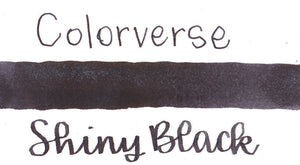 Colorverse
Shiny Black